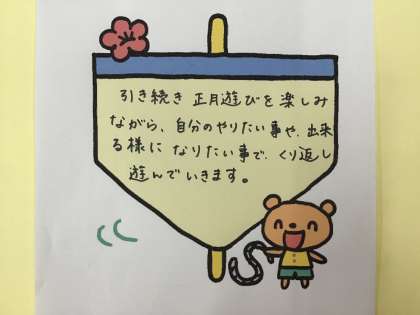 引き続き 正月遊びを楽しみ
ながら、自分のやりたい事や、出来
る様に なりたい事で、くり返し
遊んでいきます。